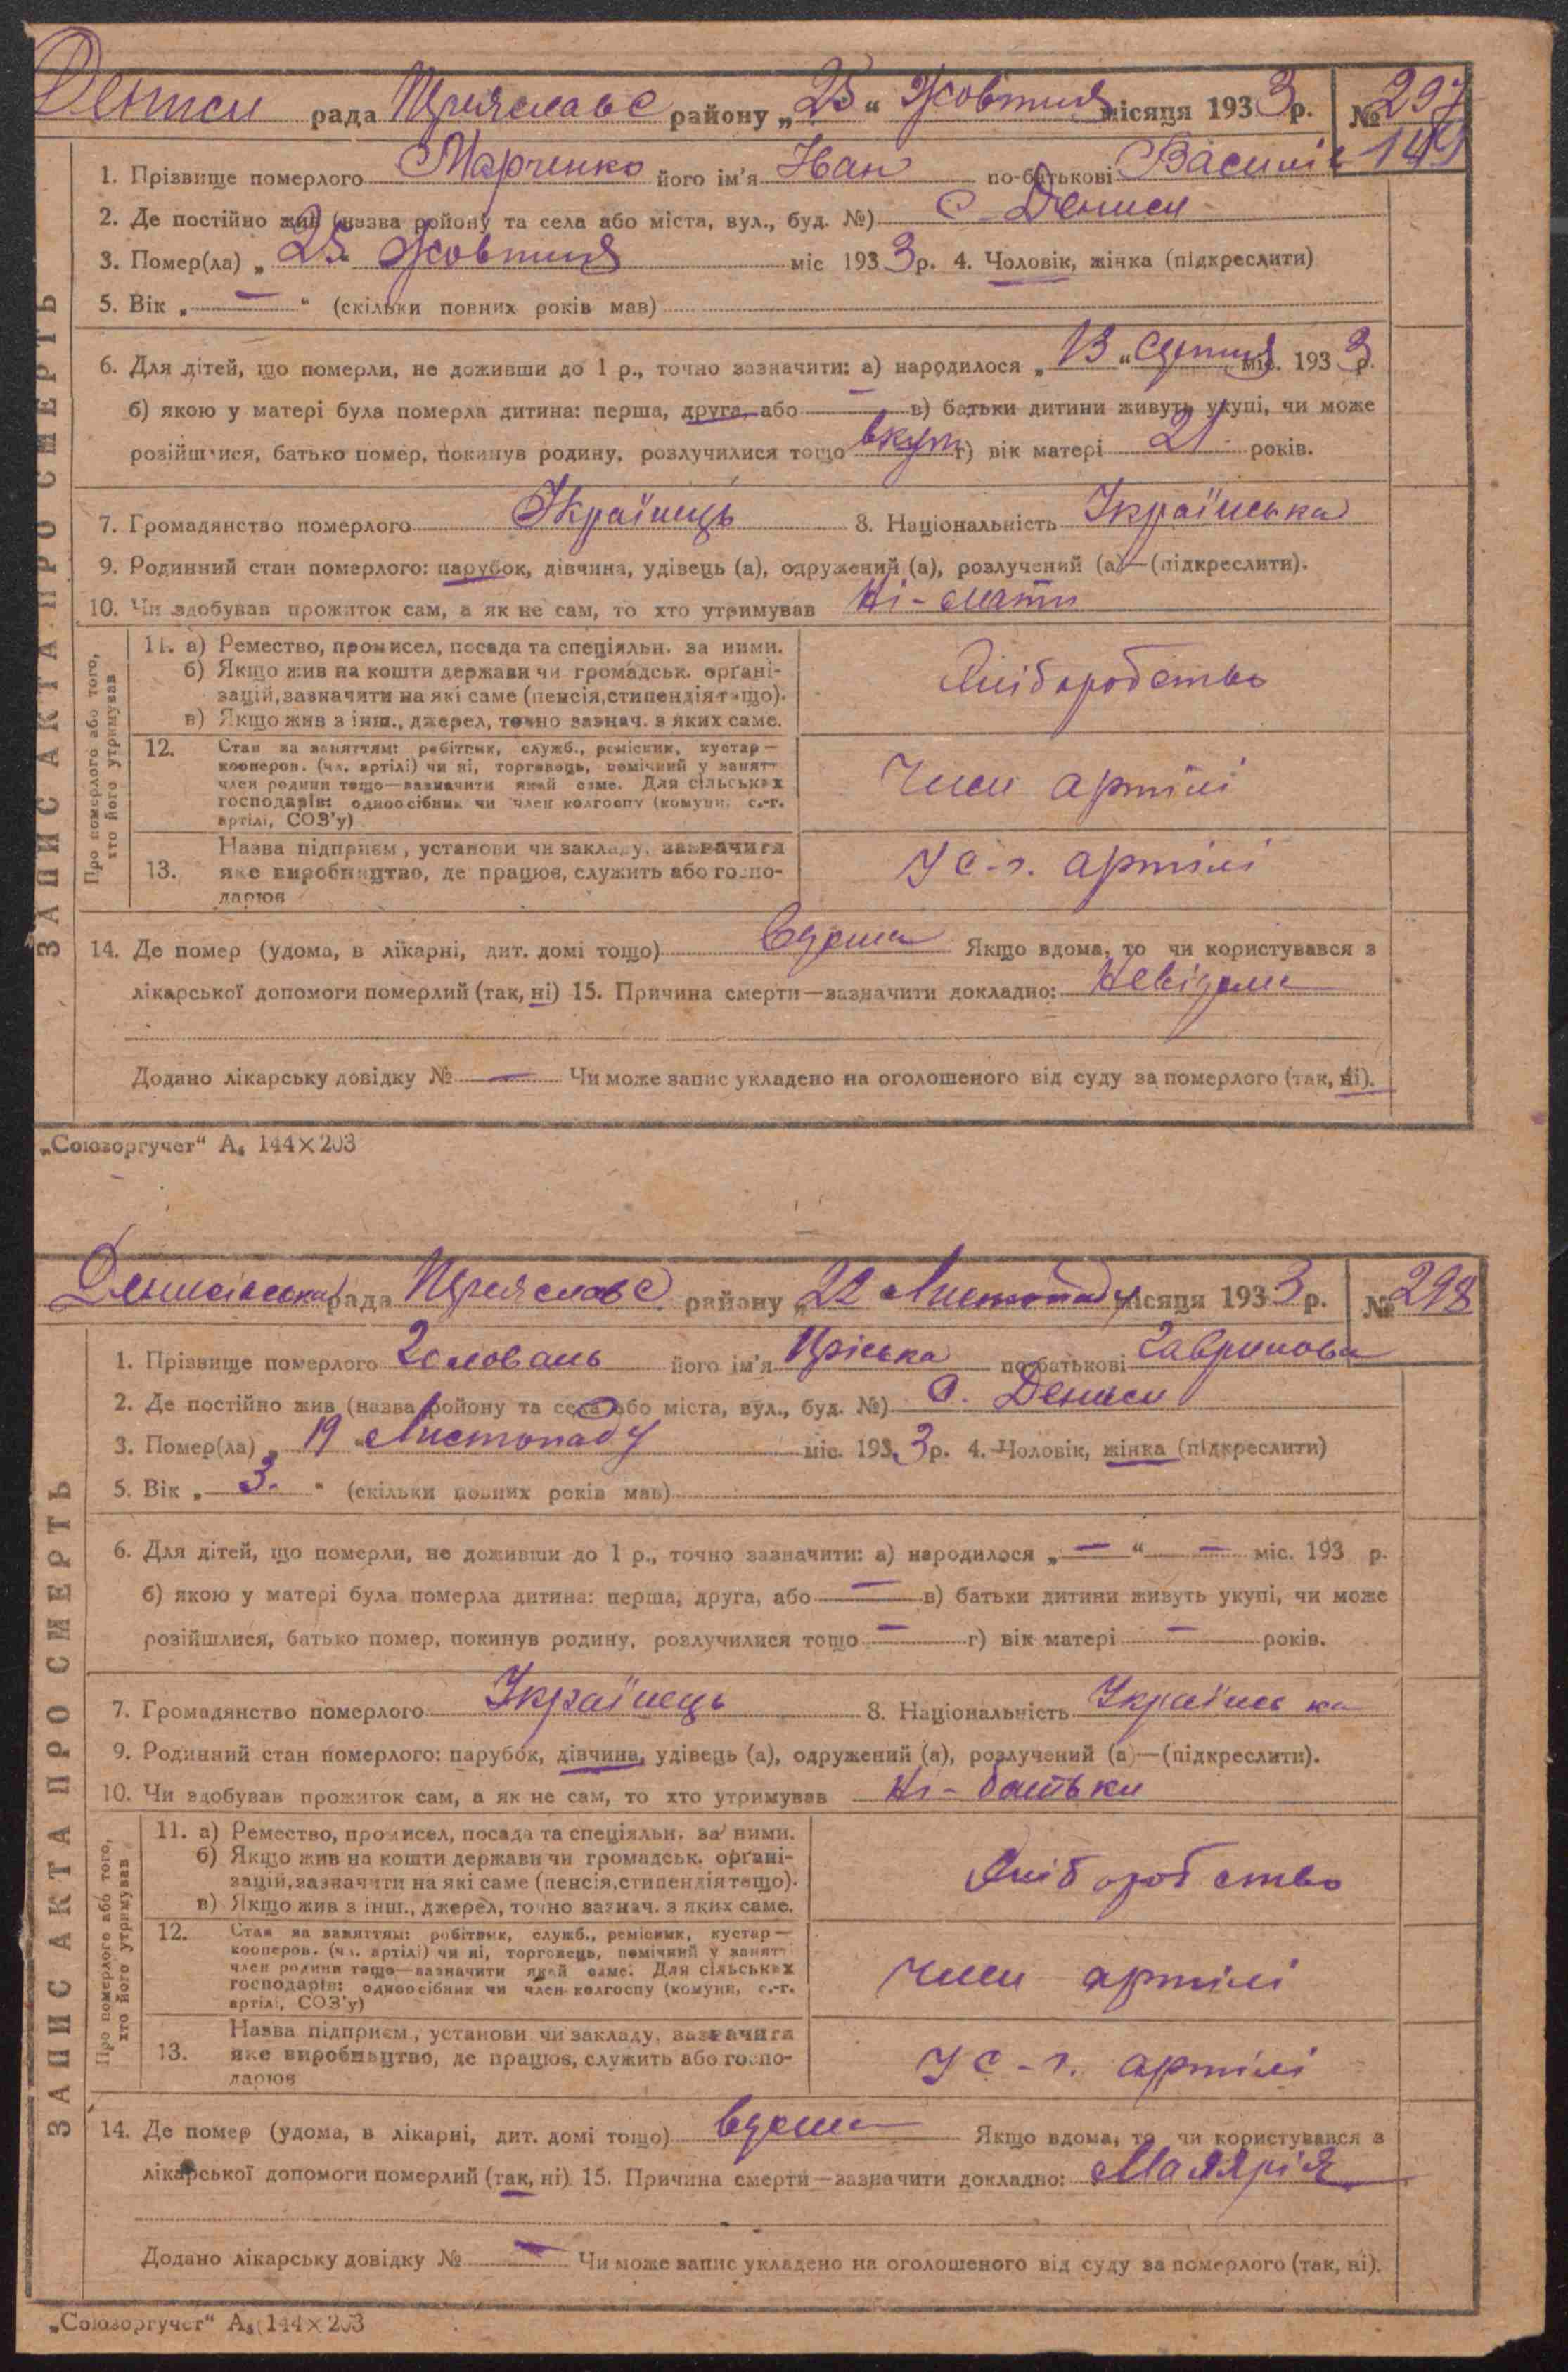 Дениси рада Переяславс району „25“ Жовтня місяця 1933 р. № 297
149
1. Прізвище померлого Марченко його ім'я Іван по-батькові Василів
2. Де постійно жив (назва району та села або міста, вул., буд. №) с. Дениси
3. Помер(ла) „25 Жовтня міс 1933 р. 4. Чоловік, жінка (підкреслити)
5. Вік „—“ (скільки повних років мав)
6. Для дітей, що померли, не доживши до 1 р., точно зазначити: а) народилося „13“ Січня міс. 1933 р.
б) якою у матері була померла дитина: перша, друга, або — в) батьки дитини живуть укупі, чи може
розійшлися, батько помер, покинув родину, розлучилися тощо вкупі г) вік матері 21 років.
7. Громадянство померлого Українець 8. Національність Українська
9. Родинний стан померлого: парубок, дівчина, удівець (а), одружений (а), розлучений (а)—(підкреслити).
10. Чи здобував прожиток сам, а як не сам, то хто утримував Ні - мати
ЗАПИС АКТА ПРО СМЕРТЬ
Про померлого або того, хто його утримував
11. а) Ремество, промисел, посада та спеціяльн. за ними.
б) Якщо жив на кошти держави чи громадськ. орґані-
зацій, зазначити на які саме (пенсія, стипендія тощо).
в) Якщо жив з інш., джерел, точно зазнач. з яких саме.
Хліборобство
12. Стан за заняттям: робітник, служб., ремісник, кустар—
кооперов. (чл. артілі) чи ні, торговець, помічний у занятт
член родини тощо—зазначити який саме. Для сільських
господарів: одноосібник чи член колгоспу (комуни, с.-г.
артілі, СОЗ'у)
Член артілі
13. Назва підприєм., установи чи закладу, зазначити
яке виробництво, де працює, служить або госпо-
дарює
У с-г. артілі
14. Де помер (удома, в лікарні, дит. домі тощо) вдома Якщо вдома, то чи користувався з
лікарської допомоги померлий (так, ні) 15. Причина смерти—зазначити докладно: Невідома
Додано лікарську довідку № — Чи може запис укладено на оголошеного від суду за померлого (так, ні).
„Союзоргучет“ А₅ 144×203
Денисівська рада Переяславс району „22 Листопаду місяця 1933 р. № 298
1. Прізвище померлого Головань його ім'я Пріська по-батькові Гаврилова
2. Де постійно жив (назва району та села або міста, вул., буд. №) с. Дениси
3. Помер(ла) „19“ Листопаду міс. 1933 р. 4. Чоловік, жінка (підкреслити)
5. Вік „3.“ (скільки повних років мав)
6. Для дітей, що померли, не доживши до 1 р., точно зазначити: а) народилося „—“ — міс. 193 р.
б) якою у матері була померла дитина: перша, друга, або — в) батьки дитини живуть укупі, чи може
розійшлися, батько помер, покинув родину, розлучилися тощо — г) вік матері — років.
7. Громадянство померлого Українець 8. Національність Українська
9. Родинний стан померлого: парубок, дівчина, удівець (а), одружений (а), розлучений (а)—(підкреслити).
10. Чи здобував прожиток сам, а як не сам, то хто утримував Ні - батьки
ЗАПИС АКТА ПРО СМЕРТЬ
Про померлого або того, хто його утримував
11. а) Ремество, промисел, посада та спеціяльн. за ними.
б) Якщо жив на кошти держави чи громадськ. орґані-
зацій, зазначити на які саме (пенсія, стипендія тощо).
в) Якщо жив з інш., джерел, точно зазнач. з яких саме.
Хліборобство
12. Стан за заняттям: робітник, служб., ремісник, кустар—
кооперов. (чл. артілі) чи ні, торговець, помічний у занятт
член родини тощо—зазначити який саме. Для сільських
господарів: одноосібник чи член колгоспу (комуни, с.-г.
артілі, СОЗ'у)
Член артілі
13. Назва підприєм., установи чи закладу, зазначити
яке виробництво, де працює, служить або госпо-
дарює
У с-г. артілі
14. Де помер (удома, в лікарні, дит. домі тощо) вдома Якщо вдома, то чи користувався з
лікарської допомоги померлий (так, ні) 15. Причина смерти—зазначити докладно: Малярія
Додано лікарську довідку № — Чи може запис укладено на оголошеного від суду за померлого (так, ні).
„Союзоргучет“ А₅ 144×203